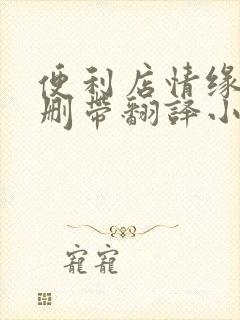 便利店情缘
删带翻译小
宠宠